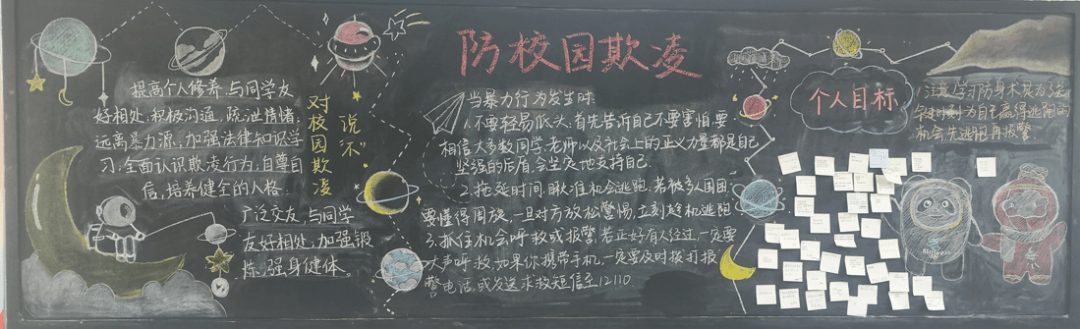 防校园欺凌
提高个人修养,与同学友
好相处,积极沟通,疏泄情绪,
远离暴力源,加强法律知识学
习,全面认识欺凌行为,自尊自
信,培养健全的人格.
广泛交友,与同学
友好相处,加强锻
炼,强身健体。
对校园欺凌
说“不”
当暴力行为发生时:
1.不要轻易低头,首先告诉自己不要害怕.要
相信大多数同学、老师以及社会上的正义力量都是自己
坚强的后盾,会坚定地支持自己.
2.拖延时间,瞅准机会逃跑.若被多人围困,
要懂得周旋,一旦对方放松警惕,立刻趁机逃跑.
3.抓住机会呼救或报警.若正好有人经过,一定要
大声呼救;如果你携带手机,一定要及时拨打报
警电话,或发送求救短信至12110
个人目标
1.注意:学习防身术是为了
为自己赢得逃跑的
机会,先逃跑再报警